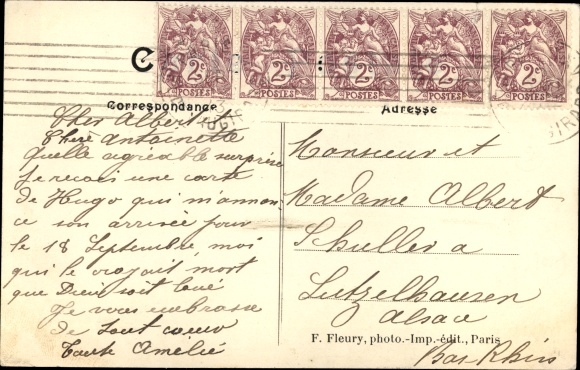 2c 2c 2c 2c 2c
POSTES POSTES POSTES POSTES POSTES
C
Correspondance
Adresse
Cher Albert et
Chère Antoinette
Quelle agréable surprise
Je reçois une carte
de Hugo qui m'annon
ce son arrivée pour
le 18 Septembre, moi
qui le croyait mort
que Dieu soit loué
Je vous embrasse
de tout cœur
Tante Amélie
Monsieur et
Madame Albert
Schuller a
Lutzelhausen
Alsace
Bas Rhin
F. Fleury, photo.-Imp.-édit., Paris